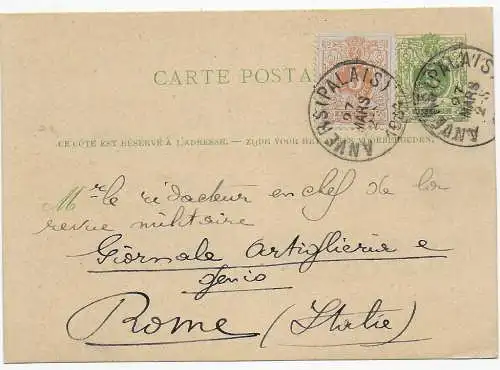 CARTE POSTA
ANVERS (PALAIS)
27
MARS
ANVERS (PALAIS)
27
MARS
CE CÔTÉ EST RÉSERVÉ À L'ADRESSE. — ZIJDE VOOR HET
Mr le rédacteur en chef de la
revue militaire
Giornale Artiglierie e
genio
Rome (Italie)